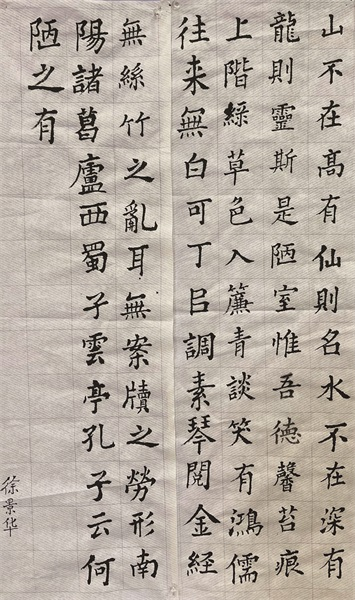 山不在髙有仙則名水不在深有
龍則靈斯是陋室惟吾德馨苔痕
上階綠草色入簾青談笑有鴻儒
往来無白可丁㠯調素琴閱金経
無絲竹之亂耳無案牘之勞形南
陽諸葛廬西蜀子雲亭孔子云何
陋之有
徐景华